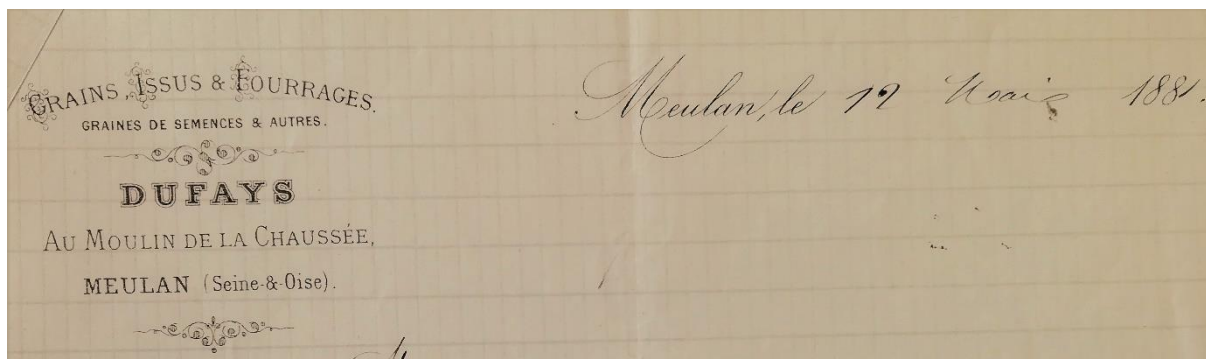 GRAINS, ISSUS & FOURRAGES.
GRAINES DE SEMENCES & AUTRES.
DUFAYS
AU MOULIN DE LA CHAUSSÉE,
MEULAN (Seine-&-Oise).
Meulan, le 188